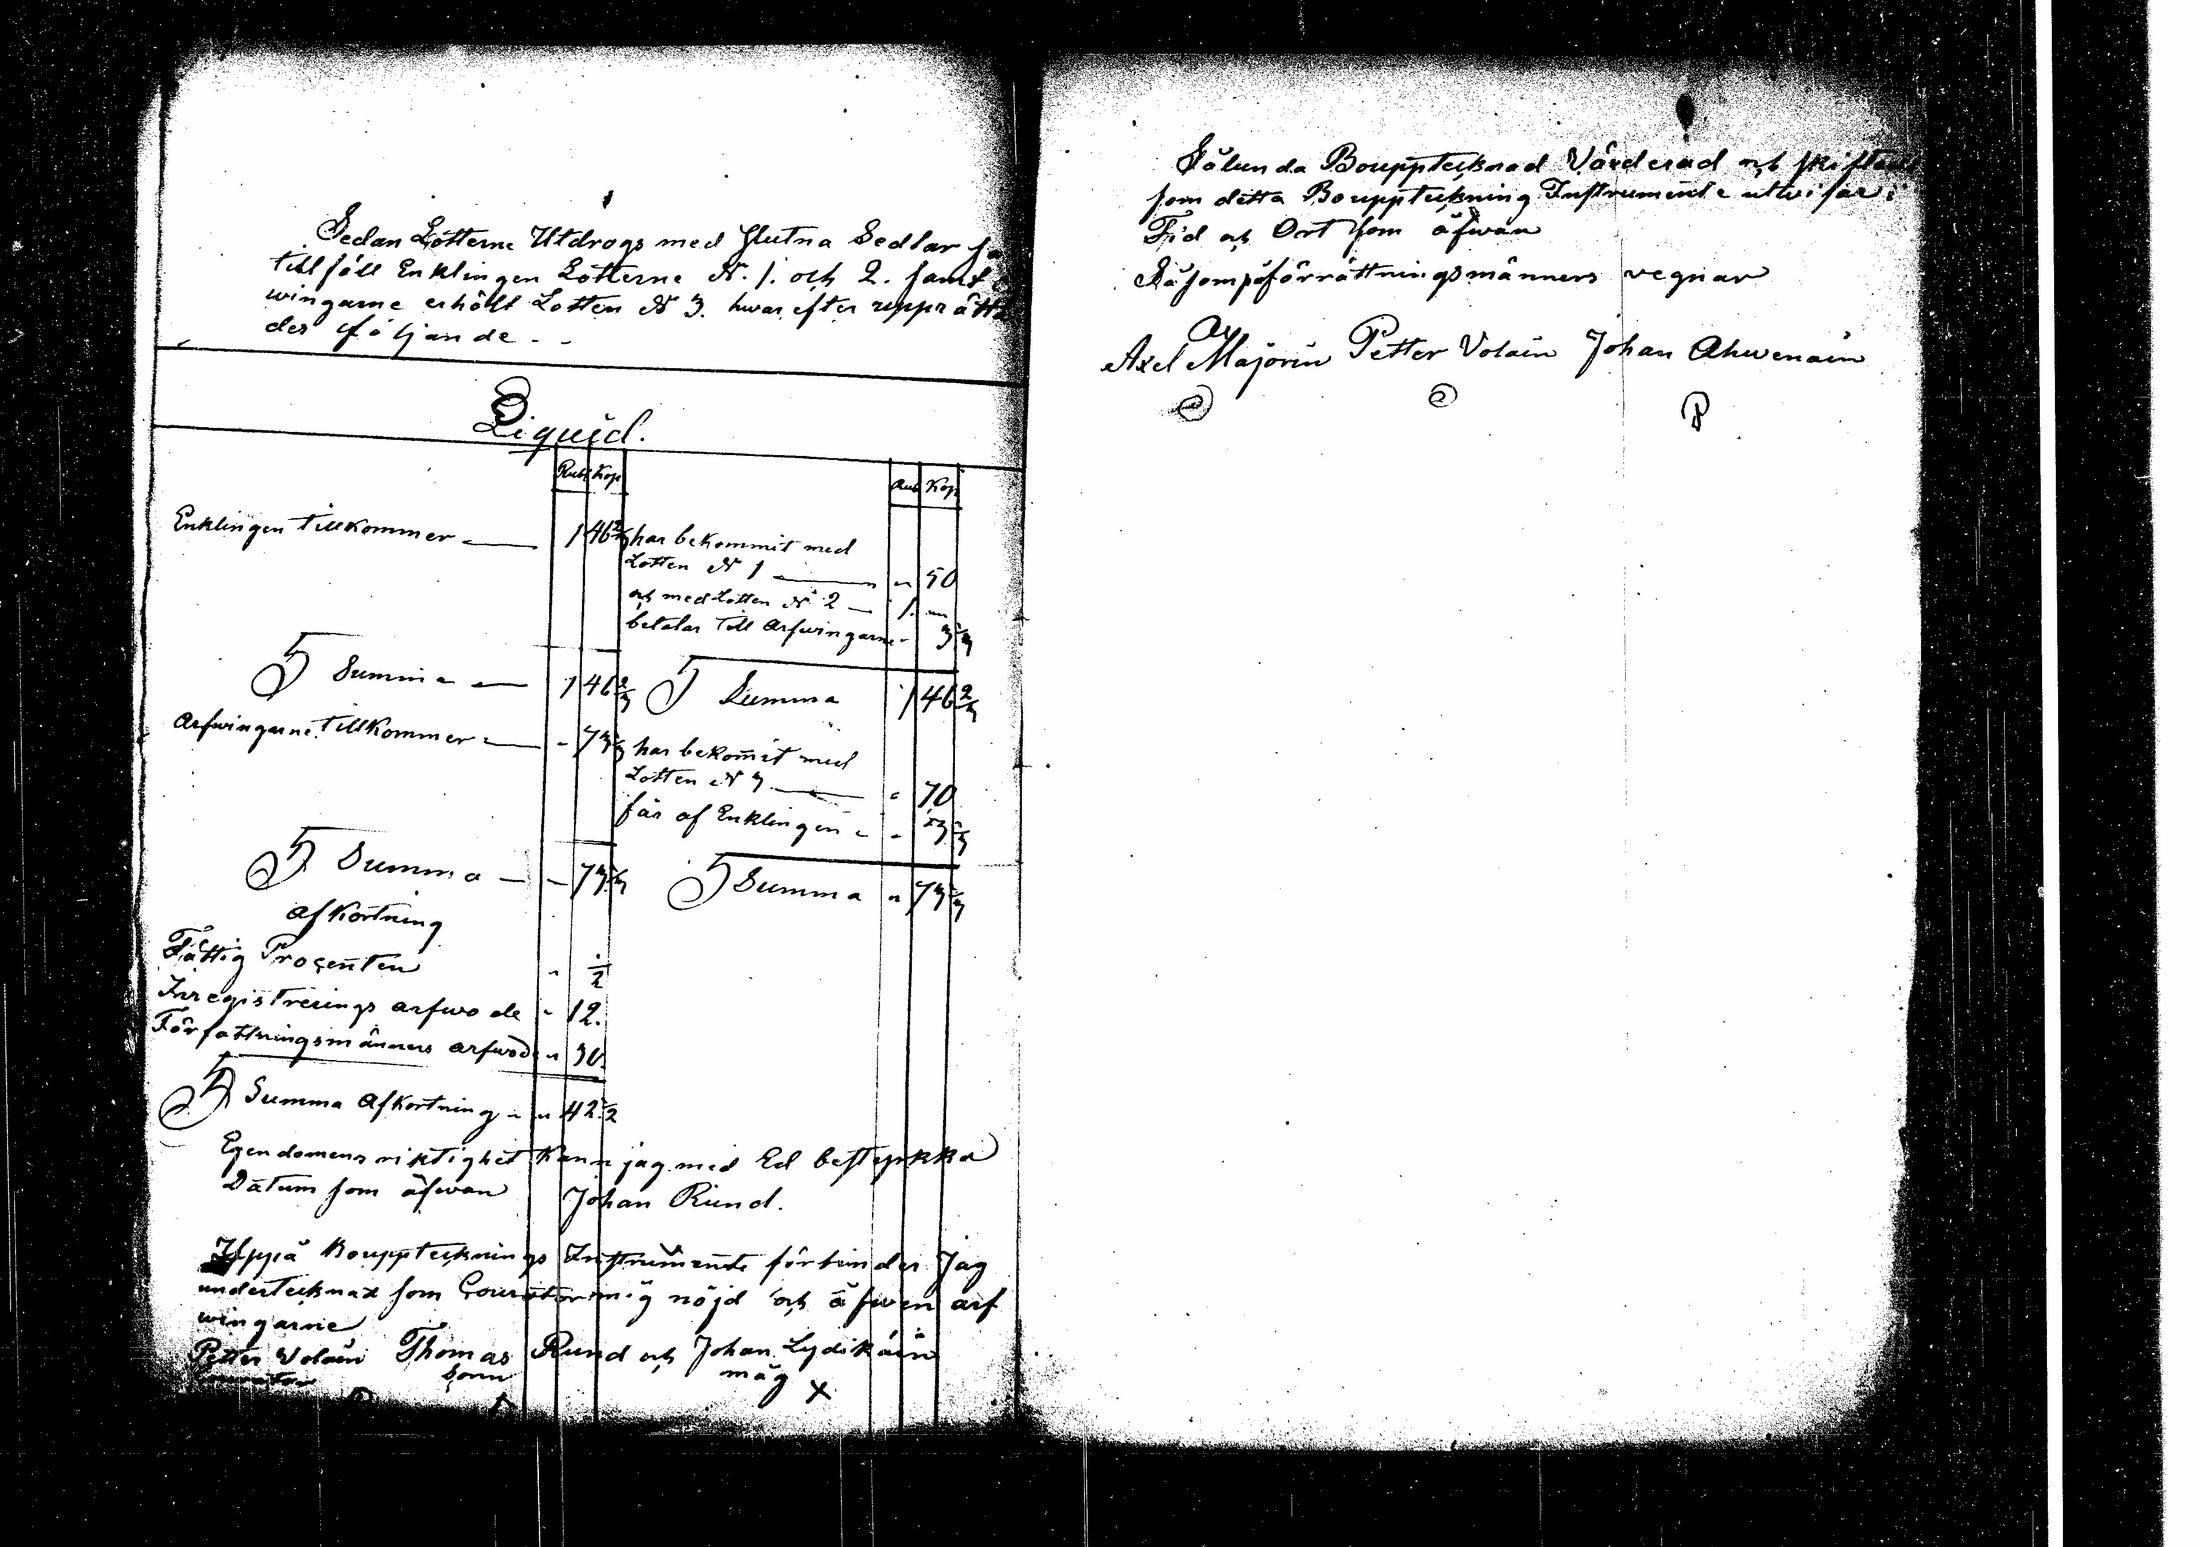 Sedan Lotterne Utdrogs med slutna Sedlar så
tillföll Enklingen Lotterne N. 1. och 2. samt
wingarne erhöllt Lotten N 3. hwar efter upprätta
des följande - -
Liquid.
Rub Kop
Rub Kop
Enklingen tillkommer — 1 46 2/3
har bekommit med
Lotten N 1 — " 50
och med Lotten N 2 — 1. —
betalar till Arfwingarne - 3 1/3
Summa — 1 46 2/3
Summa 1 46 2/3
Arfwingarne tillkommer — - 73 1/3
har bekom̄it med
Lotten N 3 — " 70
får af Enklingen - - 3 1/3
Summa — - 73 1/3
Summa " 73 1/3
afkortning
Fattig Procenten " 1/2
Inregistrerings arfwode - 12.
Författningsmänners arfwode " 30.
Summa Afkortning - " 42 1/2
Egendomens riktighet kann jag med Ed bestyrkka
Datum som äfwan Johan Rund.
Uppå Bouppteknings Instrumente förbinder Jag
undertecknat som Courator mig nöjd och äfwen arf
wingarne
Petter Volain Thomas Rund och Johan Lydikäin
Sonn måg
X
Sålunda Bouppteknad Värderad och skiftad
som detta Bouppteckning Instrumente utwisar i
Tid och Ort som äfwan
Såsom på förrättningsmänners vegnar
Axel Majorin Petter Volain Johan Ahwenain